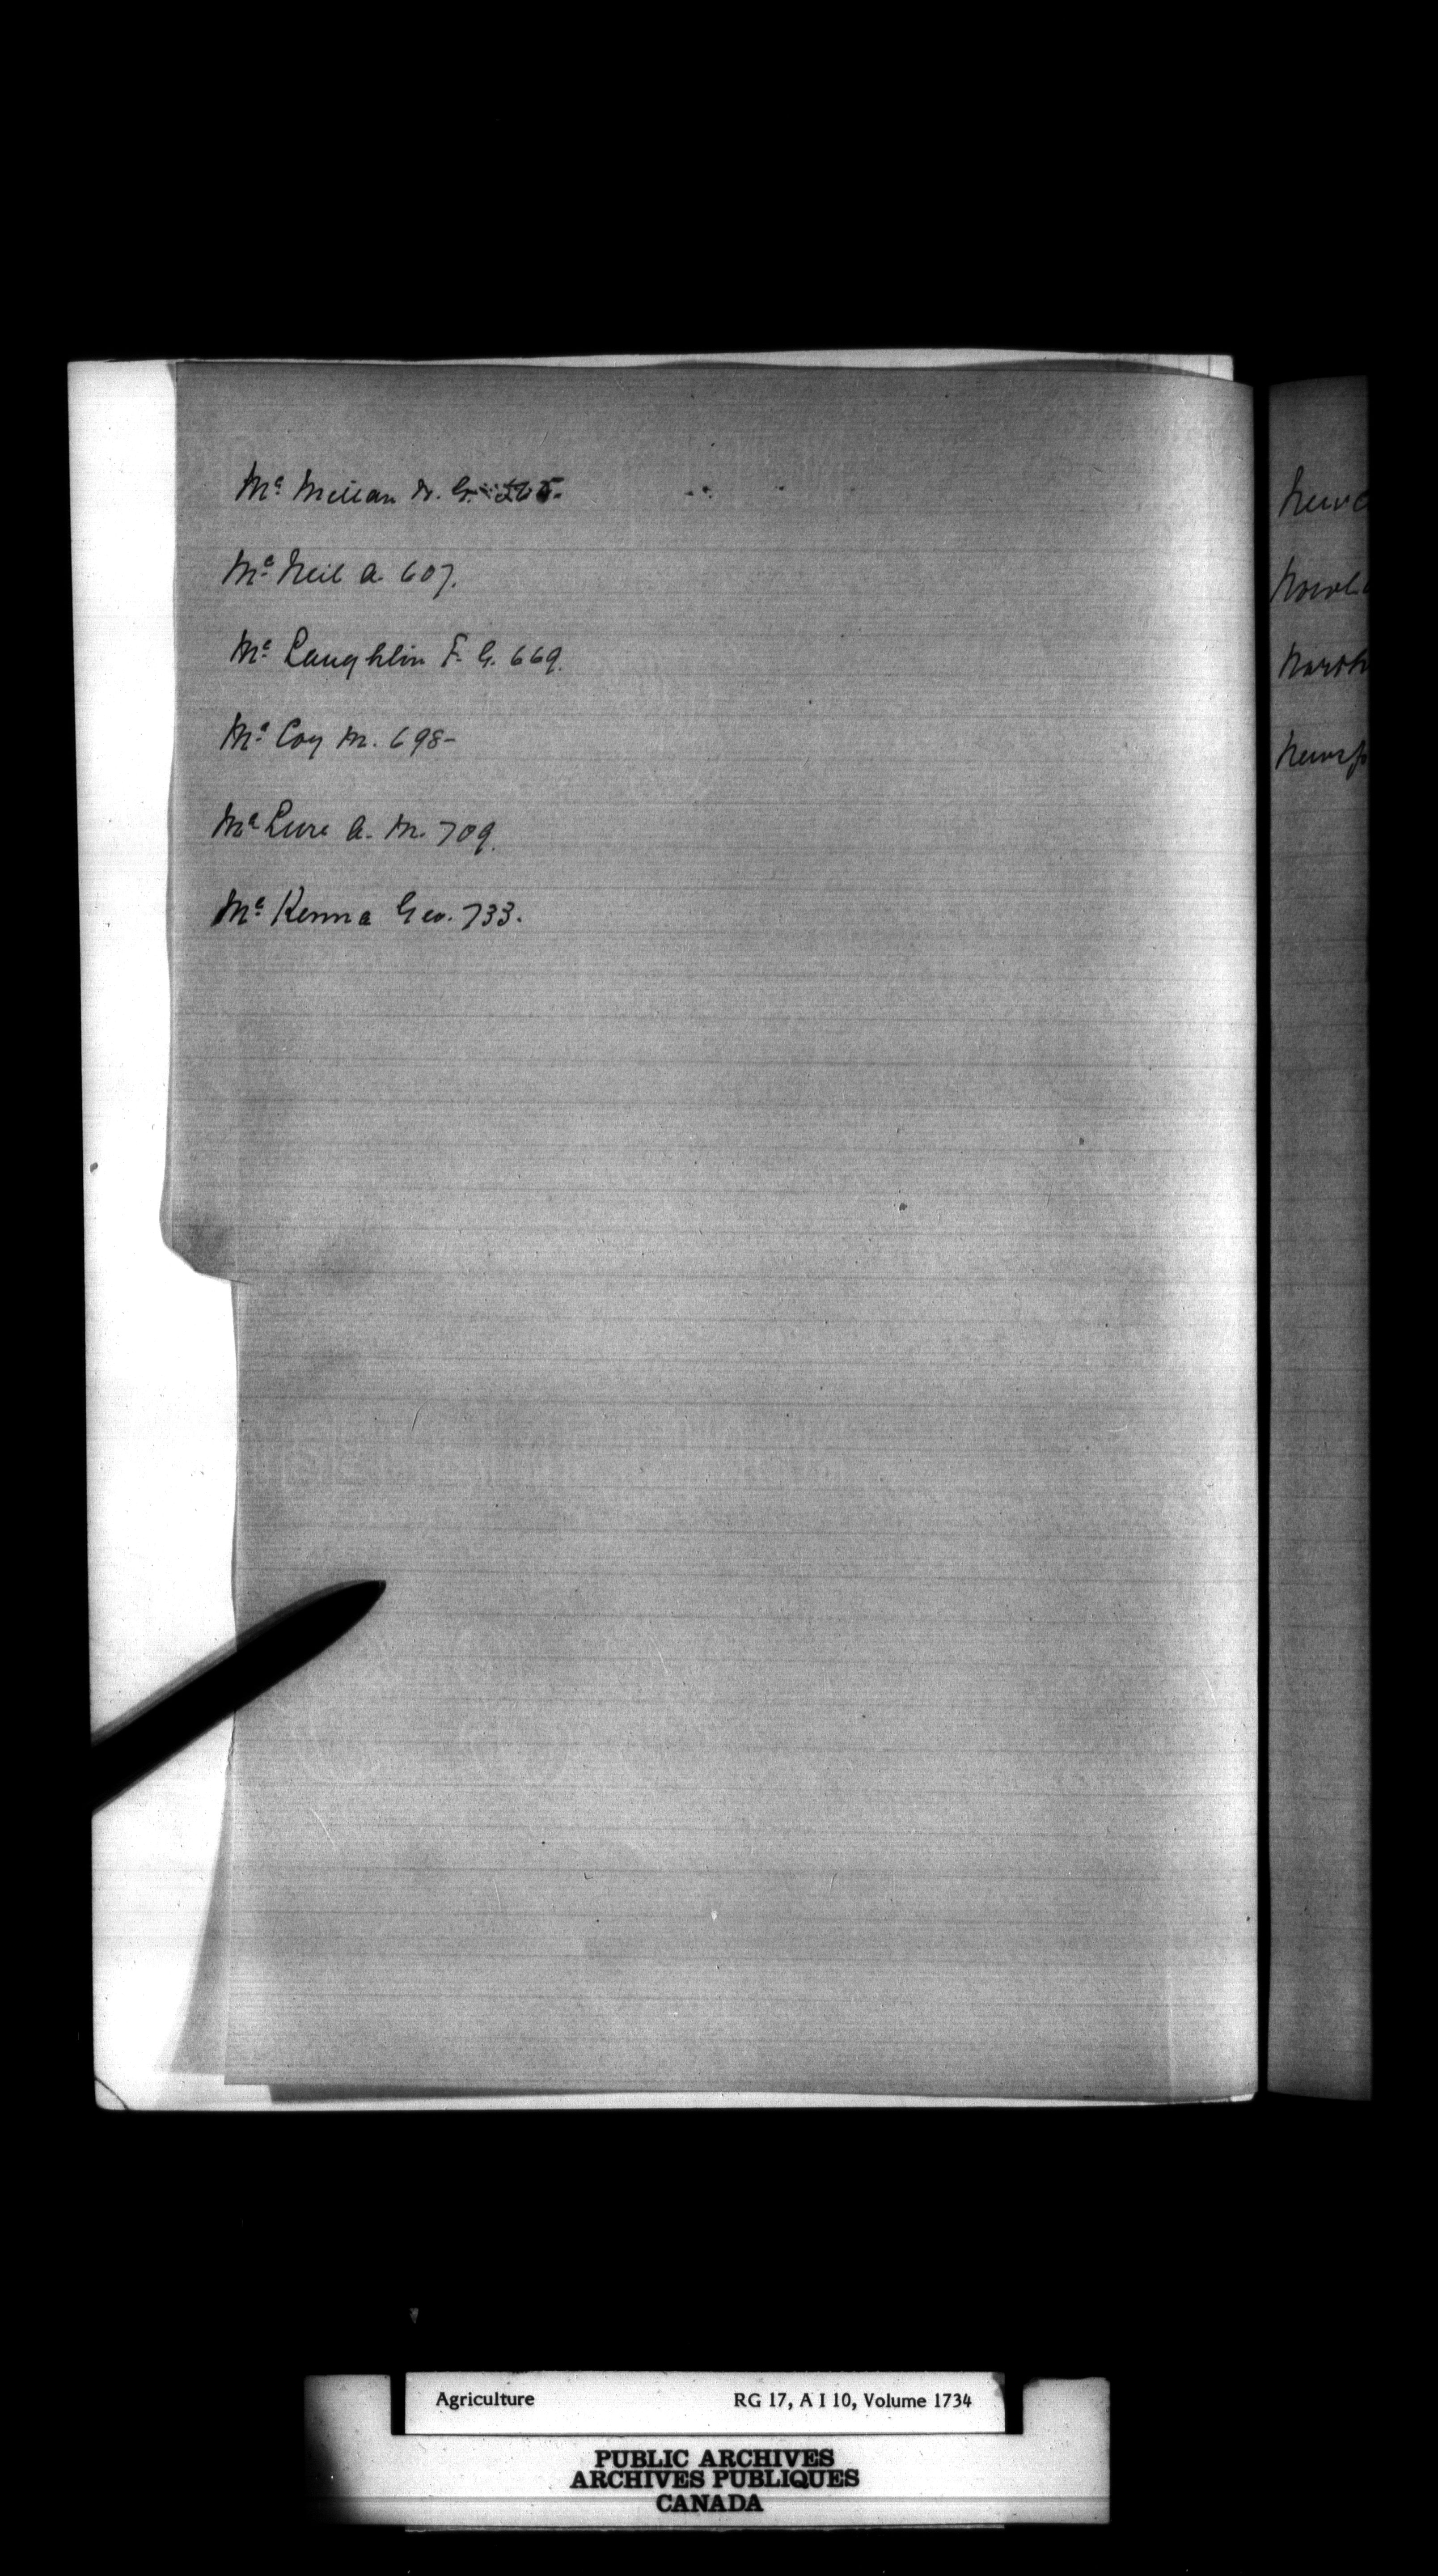 Mc Millan D. G. 265.
Mc Neil A. 607.
Mc Laughlin F. G. 669.
Mc Coy M. 698-
Mc Lure A. M. 709.
Mc Kenna Geo. 733.
Agriculture RG 17, A I 10, Volume 1734
PUBLIC ARCHIVES
ARCHIVES PUBLIQUES
CANADA